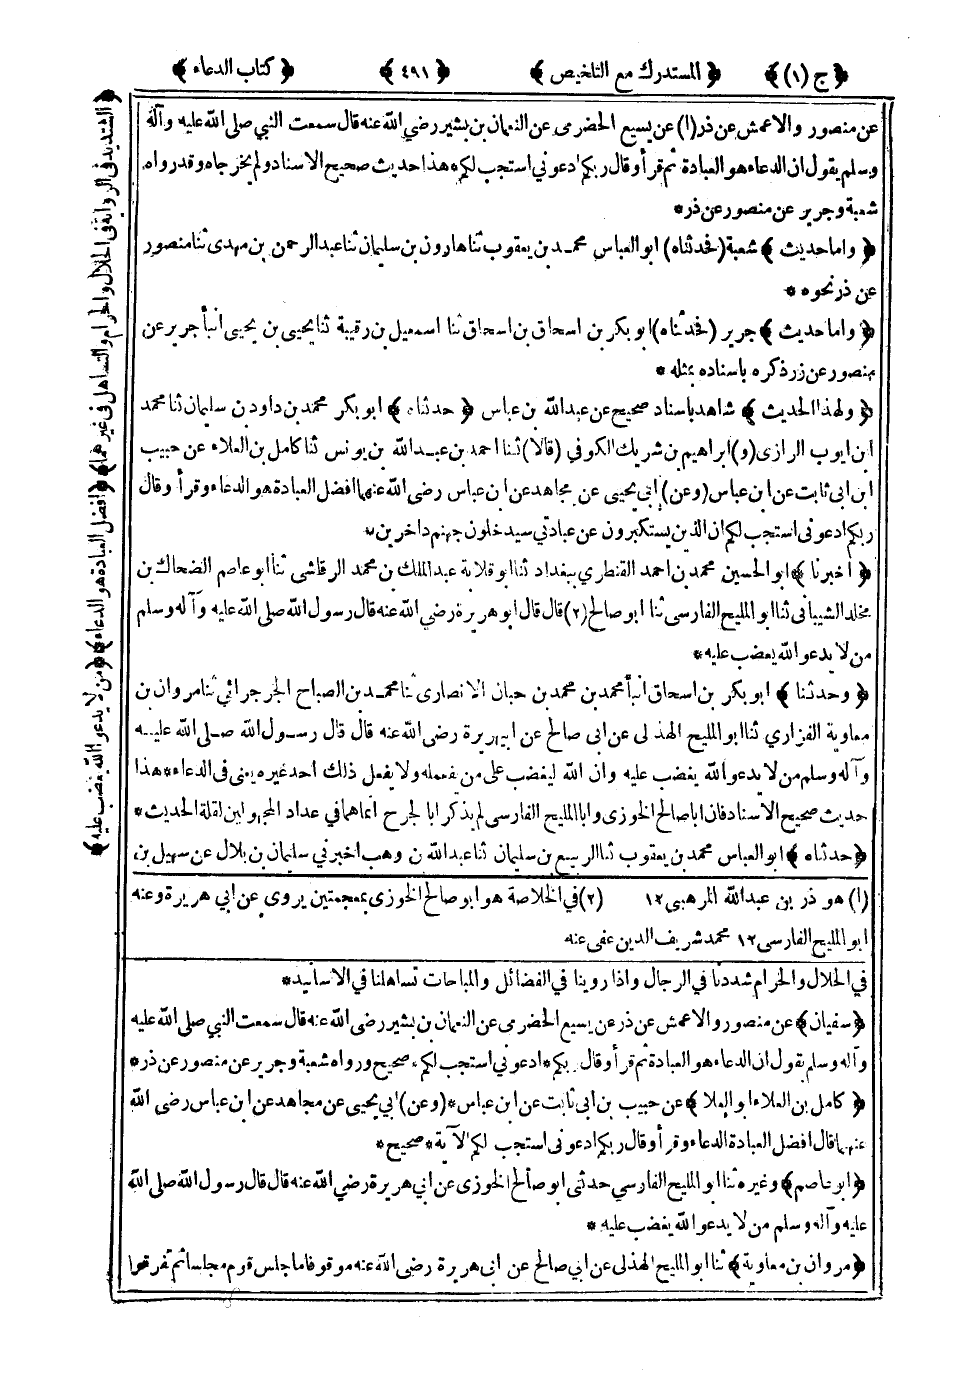 ﴿ ج (١) ﴾ ﴿ المستدرك مع التلخيص ﴾ ﴿ ٤٩١ ﴾ ﴿ كتاب الدعاء ﴾
عن منصور والاعمش عن ذر (١) عن يسيع الحضرمى عن النعمان بن بشير رضى الله عنه قال سمعت النبي صلى الله عليه وآله
وسلم يقول ان الدعاء هو العبادة ثم قرأ وقال ربكم ادعوني استجب لكم* هذا حديث صحيح الاسناد ولم يخرجاه وقد رواه
شعبة وجرير عن منصور عن ذر*
﴿ واما حديث ﴾ شعبة (فحدثناه) ابو العباس محمد بن يعقوب ثنا هارون بن سليمان ثنا عبد الرحمن بن مهدى ثنا منصور
عن ذر نحوه *
﴿ واما حديث ﴾ جرير (فحدثناه) ابو بكر بن اسحاق بن اسحاق ثنا اسمعيل بن رقيبة ثنا يحيى بن يحيى انبأ جرير عن
منصور عن زر ذكره باسناده بمثله *
﴿ ولهذا الحديث ﴾ شاهد باسناد صحيح عن عبدالله بن عباس ﴿ حدثناه ﴾ ابو بكر محمد بن داود بن سليمان ثنا محمد
ابن ايوب الرازى (و) ابراهيم بن شريك الكوفي (قالا) ثنا احمد بن عبد الله بن يونس ثنا كامل بن العلاء عن حبيب
ابن ابى ثابت عن ابن عباس (وعن) ابي يحيى عن مجاهد عن ابن عباس رضى الله عنهما افضل العبادة هو الدعاء وقرأ وقال
ربكم ادعونى استجب لكم ان الذين يستكبرون عن عبادتي سيدخلون جهنم داخرين*
﴿ اخبرنا ﴾ ابو الحسين محمد بن احمد القنطري ببغداد ثنا ابو قلابة عبد الملك بن محمد الرقاشى ثنا ابو عاصم الضحاك بن
مخلد الشيبانى ثنا ابو المليح الفارسى ثنا ابو صالح (٢) قال قال ابو هريرة رضى الله عنه قال رسول الله صلى الله عليه وآله وسلم
من لا يدعو الله يغضب عليه*
﴿ وحدثنا ﴾ ابو بكر بن اسحاق انبأ محمد بن محمد بن حبان الانصارى ثنا محمد بن الصباح الجرجرائي ثنا مروان بن
معاوية الفزاري ثنا ابو المليح الهذلى عن ابى صالح عن ابي هريرة رضى الله عنه قال قال رسول الله صلى الله عليه
وآله وسلم من لا يدعو الله يغضب عليه وان الله ليغضب على من يفعله ولا يفعل ذلك احد غيره يعنى فى الدعاء* هذا
حديث صحيح الاسناد فان ابا صالح الخوزى وابا المليح الفارسى لم يذكر ابا لجرح انما هما في عداد المجهولين لقلة الحديث*
﴿ حدثناه ﴾ ابو العباس محمد بن يعقوب ثنا الربيع بن سليمان ثنا عبدالله بن وهب اخبرني سليمان بن بلال عن سهيل بن
(١) هو ذر بن عبدالله المرهبي ١٢ (٢) في الخلاصة هو ابو صالح الخوزى بمعجمتين يروى عن ابي هريرة وعنه
ابو المليح الفارسى ١٢ محمد شريف الدين عفى عنه
في الحلال والحرام شددنا في الرجال واذا روينا في الفضائل والمباحات تساهلنا في الاسانيد*
﴿ سفيان ﴾ عن منصور والاعمش عن ذر عن يسيع الحضرمى عن النعمان بن بشير رضى الله عنه قال سمعت النبي صلى الله عليه
وآله وسلم يقول ان الدعاء هو العبادة ثم قرأ وقال ربكم* ادعوني استجب لكم، صحيح ورواه شعبة وجرير عن منصور عن ذر *
﴿ كامل بن العلاء ابو العلا ﴾ عن حبيب بن ابى ثابت عن ابن عباس* (وعن) ابي يحيى عن مجاهد عن ابن عباس رضى الله
عنهما قال افضل العبادة الدعاء وقرأ وقال ربكم ادعونى استجب لكم الآية* صحيح*
﴿ ابو عاصم ﴾ وغيره ثنا ابو المليح الفارسي حدثني ابو صالح الخوزى عن ابي هريرة رضي الله عنه قال قال رسول الله صلى الله
عليه وآله وسلم من لا يدعو الله يغضب عليه *
﴿ مروان بن معاوية ﴾ ثنا ابو المليح الهذلى عن ابي صالح عن ابى هريرة رضى الله عنه موقوفا ما جلس قوم مجلسا ثم تفرقوا
﴿ التشديد فى الرواية فى الحلال والحرام والتساهل فى غيرهما ﴾ ﴿ افضل العبادة هو الدعاء ﴾ ﴿ من لا يدعو الله يغضب عليه ﴾